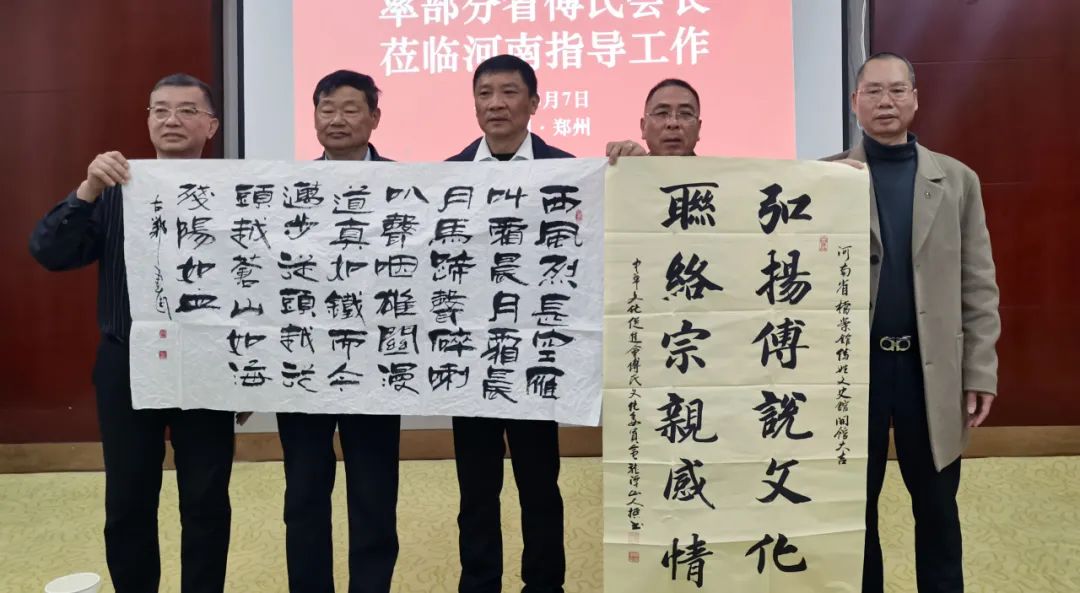 率部分省傅氏会长
莅临河南指导工作
月7日
·郑州
西風烈長空雁
叫霜晨月霜晨
月馬蹄聲碎喇
叭聲咽雄關漫
道真如鐵而今
邁步從頭越從
頭越蒼山如海
殘陽如血
古鄭
河南省檔案館傅姓文史館開館大吉
弘揚傅說文化
聯絡宗親感情
中华文化促進會傅氏文化委員會山人撰书